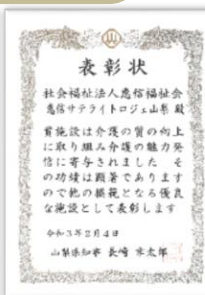 表彰状
社会福祉法人恵信福祉会
恵信サテライトロジェ山梨 殿
貴施設は介護の質の向上
に取り組み介護の魅力発
信に寄与されました そ
の功績は顕著であります
ので他の模範となる優良
な施設として表彰します
令和3年2月4日
山梨県知事 長崎 幸太郎